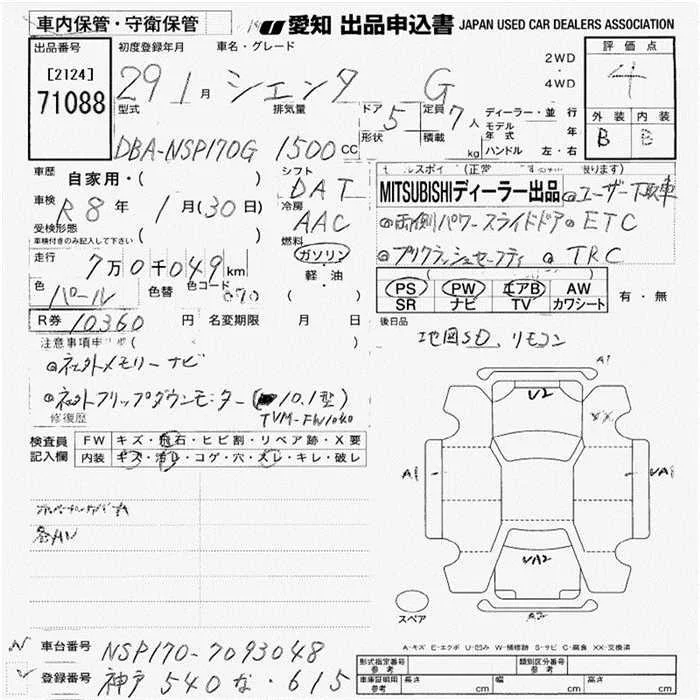 車内保管・守衛保管
愛知 出品申込書 JAPAN USED CAR DEALERS ASSOCIATION
出品番号 初度登録年月 車名・グレード 2WD 4WD 評価点
[2124]
71088
29 1月 シエンタ G 4
型式 排気量 ドア 5 形状 定員 7人 積載 kg ディーラー・並行 モデル年式 年 ハンドル 左・右 外装 内装
DBA-NSP170G 1500cc B B
車歴 自家用・( ) シフト DAT
MITSUBISHIディーラー出品 @ユーザー下取車
車検 R8年 1月(30日) 冷房 AAC
@両側パワースライドドア @ETC
受検形態
・車検付きのみ記入して下さい ( ) 燃料 ガソリン 軽・油 ( )
@プリクラッシュセーフティ @TRC
走行 7万0千049km
色 パール 色替 色コード 070
PS PW エアB AW
SR ナビ TV カワシート 有・無
R券 10360円 名変期限 月 日
後日品
地図SD、リモコン
注意事項
@ネクストメモリーナビ
@ネクストフリップダウンモニター(10.1型)
TVM-FW1040
修復歴
検査員記入欄 FW キズ・飛石・ヒビ割・リペア跡・X要
内装 キズ・汚レ・コゲ・穴・スレ・キレ・破レ
A1
U2
XX
A1
UA1
UA2
A2
スペア
A-キズ E-エクボ U-凹み W-補修跡 S-サビ C-腐食 XX-交換済
車台番号 NSP170-7093048
登録番号 神戸 540 な・615
形式指定番号 参考 類別区分番号 参考
車庫証明用 参考 長さ cm 幅 cm 高さ cm